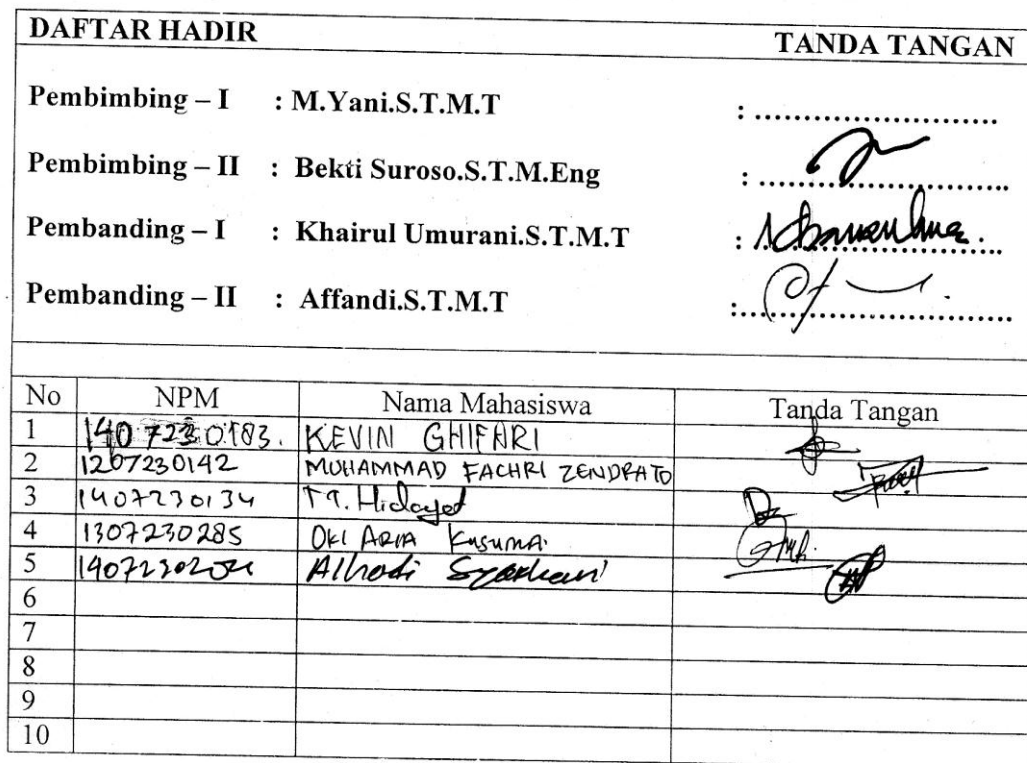 DAFTAR HADIR TANDA TANGAN
Pembimbing – I : M.Yani.S.T.M.T : ..............................
Pembimbing – II : Bekti Suroso.S.T.M.Eng : ..............................
Pembanding – I : Khairul Umurani.S.T.M.T : ..............................
Pembanding – II : Affandi.S.T.M.T : ..............................
No NPM Nama Mahasiswa Tanda Tangan
1 1407230183. KEVIN GHIFARI
2 1207230142 MUHAMMAD FACHRI ZENDRATO
3 1407230134 Hidayat
4 1307230285 OKI ARIA KUSUMA
5 Alhadi
6
7
8
9
10